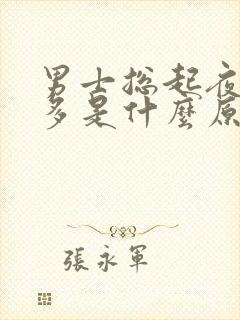 男士总起夜
多是什麼原
張永軍